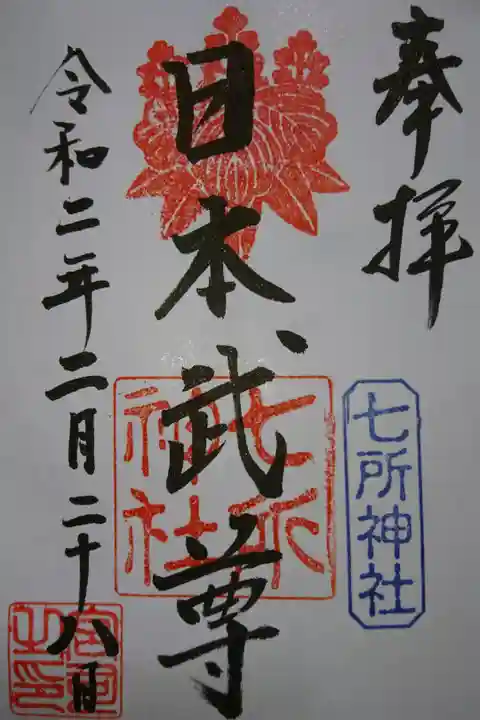 奉拝
七所神社
日本武尊
七所
神社
令和二年二月二十八日
宮司
之印